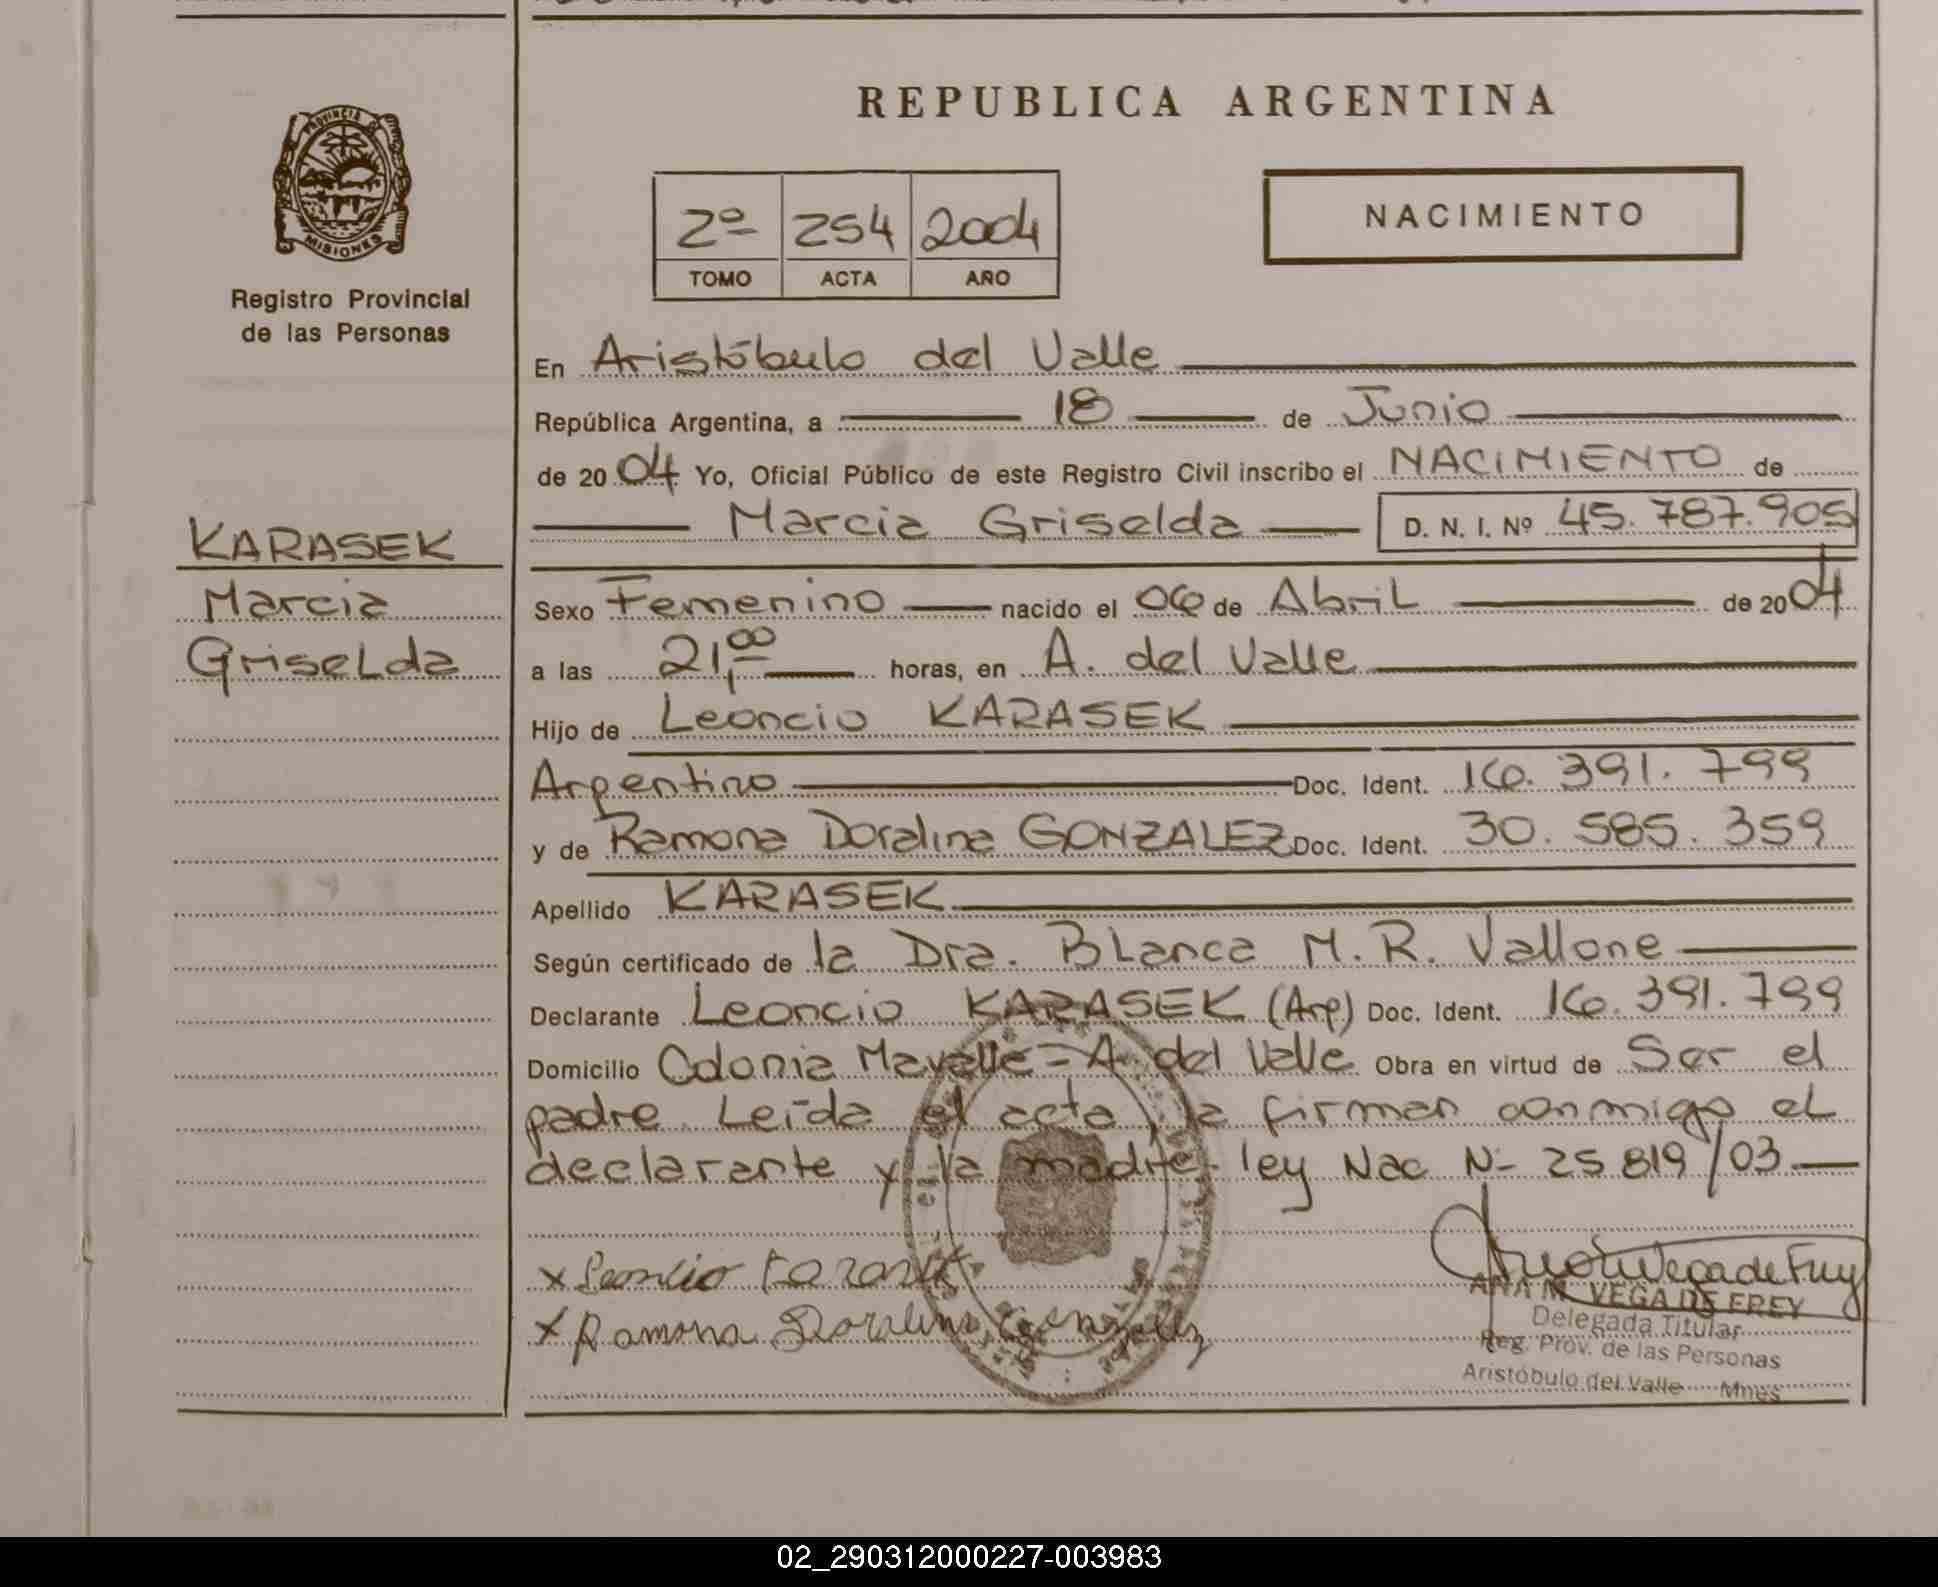 REPUBLICA ARGENTINA
PROVINCIA DE
MISIONES
Registro Provincial
de las Personas
2º 254 2004
TOMO ACTA AÑO
NACIMIENTO
En Aristóbulo del Valle
República Argentina, a 18 de Junio
de 2004 Yo, Oficial Público de este Registro Civil inscribo el NACIMIENTO de
Marcia Griselda D. N. I. Nº 45.787.905
KARASEK
Marcia
Griselda
Sexo Femenino nacido el 06 de Abril de 2004
a las 21,00 horas, en A. del Valle
Hijo de Leoncio KARASEK
Argentino Doc. Ident. 16.391.799
y de Ramona Doralina GONZALEZ Doc. Ident. 30.585.359
Apellido KARASEK
Según certificado de la Dra. Blanca M. R. Vallone
Declarante Leoncio KARASEK (Arg) Doc. Ident. 16.391.799
Domicilio Colonia Mavalle - A. del Valle Obra en virtud de Ser el
padre. Leída el acta, la firman conmigo el
declarante y la madre. ley Nac Nº 25819/03
x Leoncio Karasek
x Ramona Doralina Gonzalez
ANA M. VEGA DE FREY
Delegada Titular
Reg. Prov. de las Personas
Aristóbulo del Valle Mnes
02_290312000227-003983